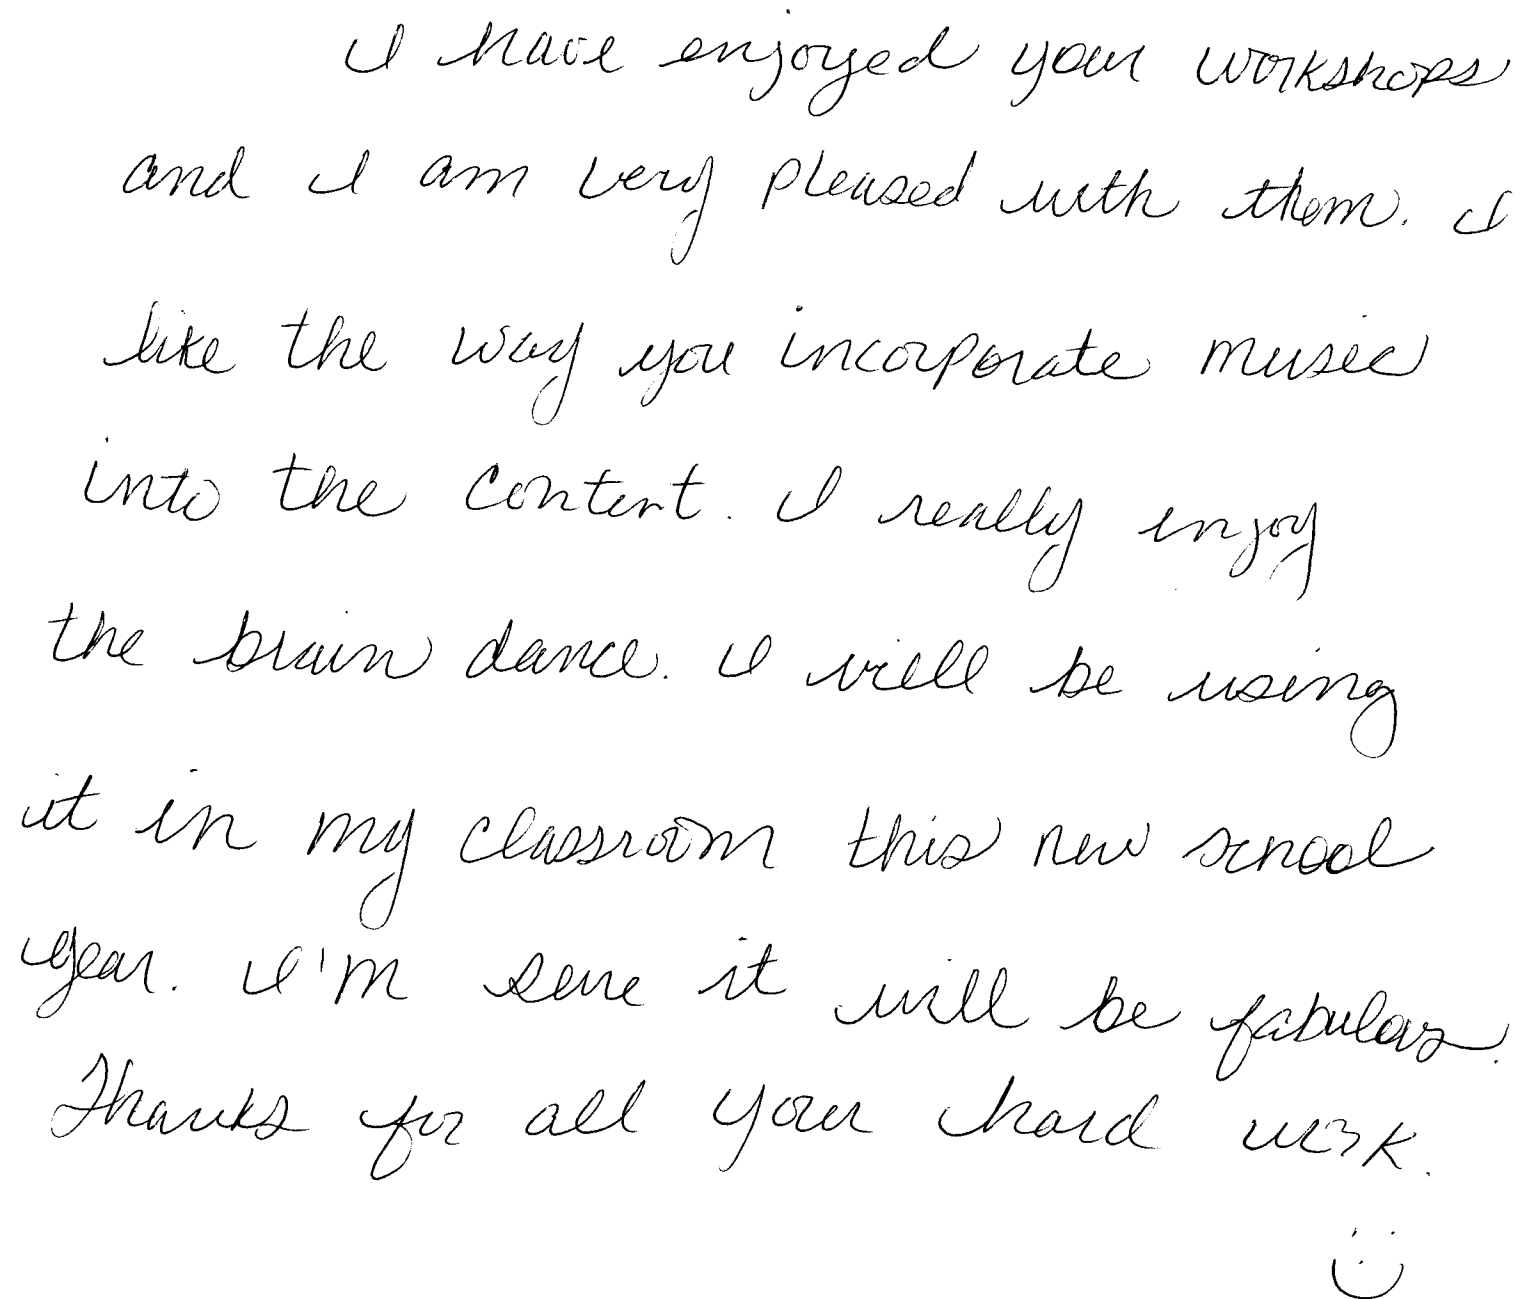 I have enjoyed your workshops
and I am very pleased with them. I
like the way you incorporate music
into the content. I really enjoy
the brain dance. I will be using
it in my classroom this new school
year. I'm sure it will be fabulous.
Thanks for all your hard work.